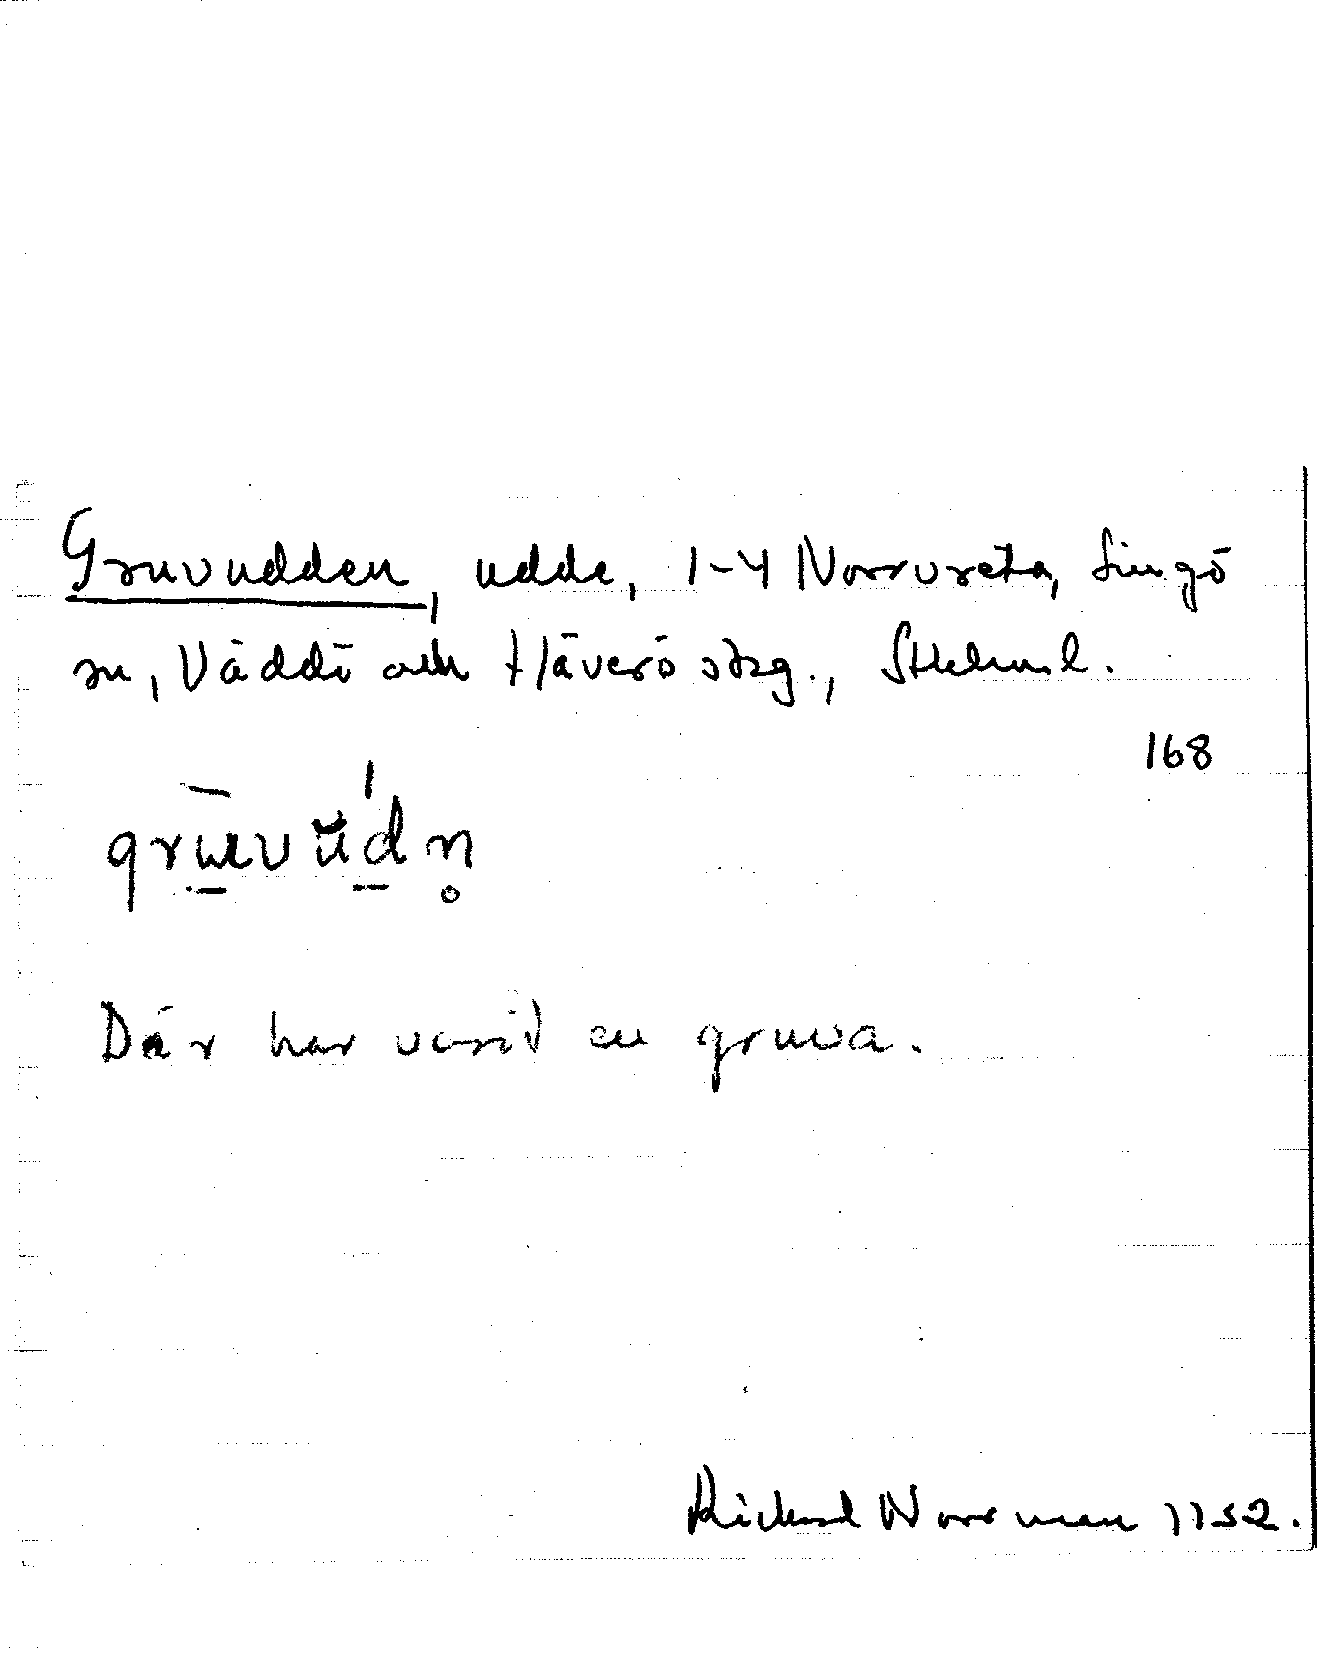 Gruvudden, udde, 1-4 Norrvreta, Singö
sn, Väddö och Häverö skg., Sthlms l.
168
Där har varit en gruva.
Rickard Norrman 1952.